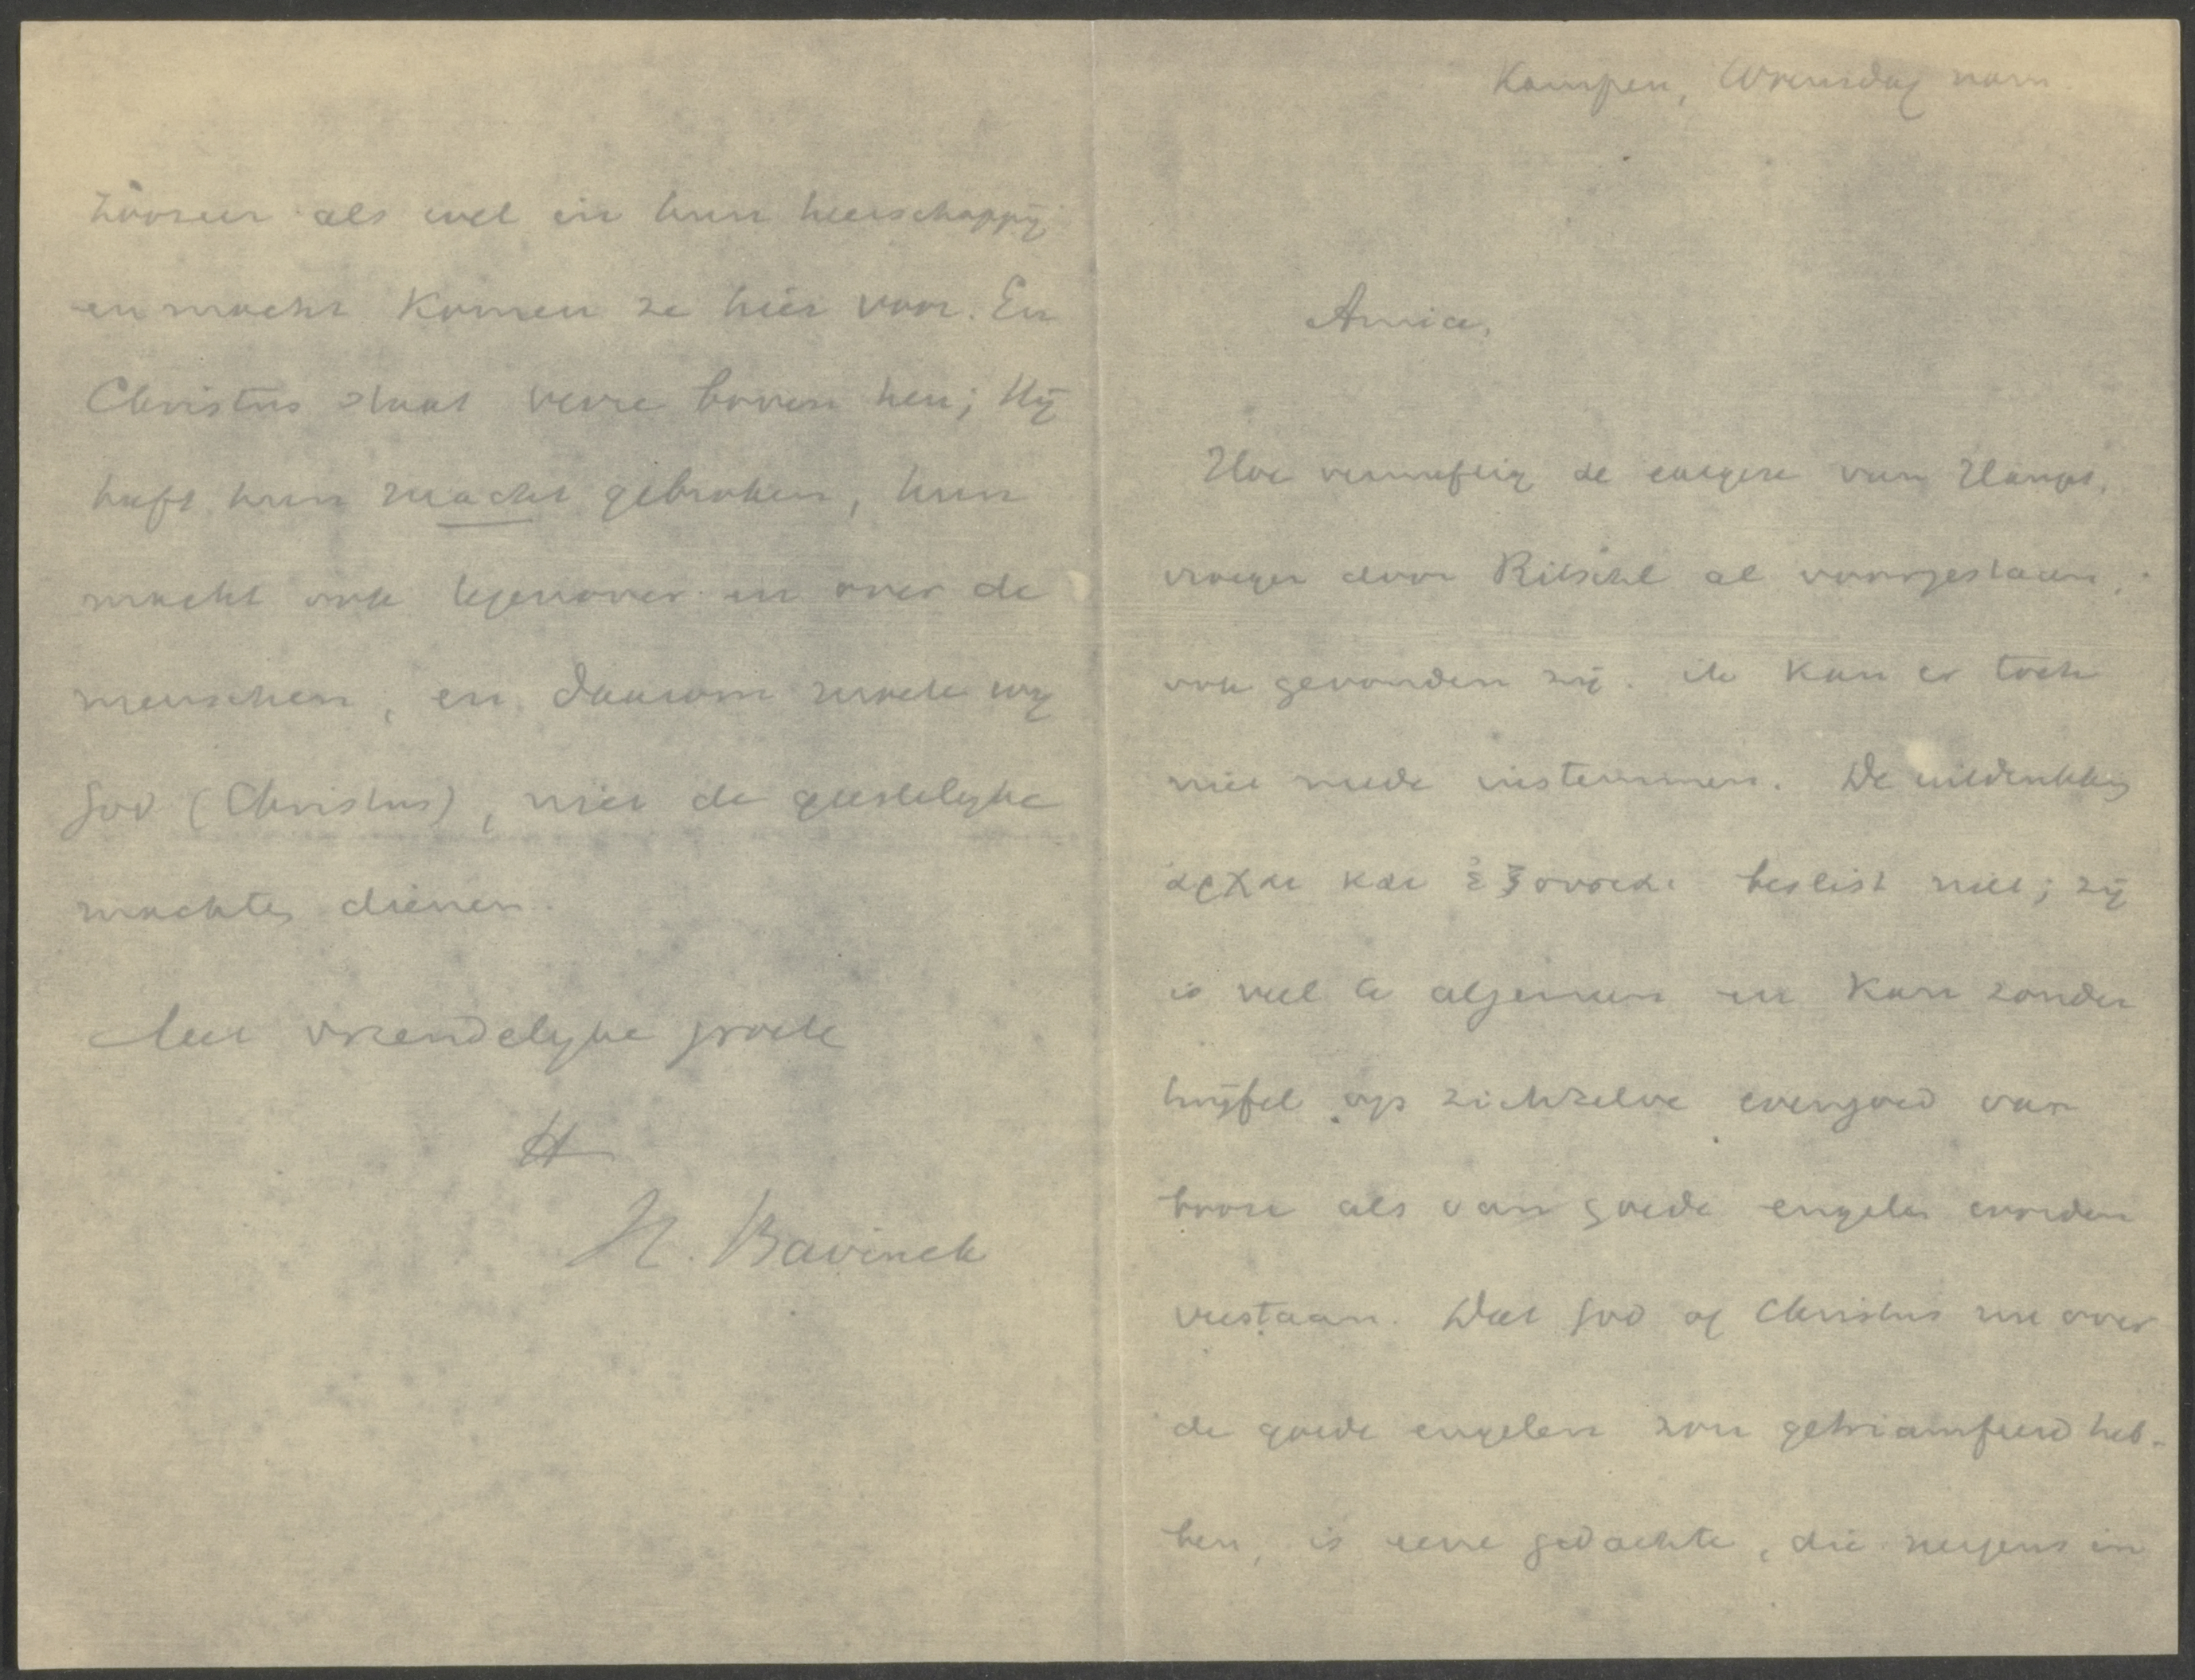 Kampen, Woensdag nam.
Amice,
Hoe vernuftig de exegese van Haupt,
vroeger door Ritschl al voorgestaan,
ook gevonden zij. ik kan er toch
niet mede instemmen. De uitdrukking
ἀρχαι και ἐξουσιαι beslist niet; zij
is veel te algemeen en kan zonder
twijfel op zichzelve evengoed van
booze als van goede engelen worden
verstaan. Dat God of Christus nu over
de goede engelen zou getriumfeerd heb-
ben, is eene gedachte, die nergens in
als wel in hun heerschappij
en macht komen ze hier voor. En
Christus staat verre boven hen; Hij
heeft hun macht gebroken, hun
macht ook tegenover en over de
menschen, en daarom moeten wij
God (Christus), niet de geestelijke
machten dienen.
Met vriendelijke groete
tt
H. Bavinck